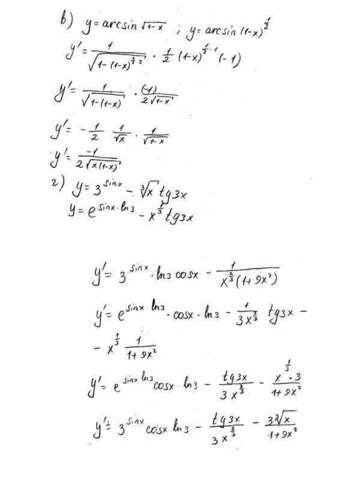 в) y = arcsin √1-x ; y = arcsin (1-x)^½
y' = 1/√(1-(1-x)^(½·2)) · 1/2 (1-x)^(½-1) (-1)
y' = 1/√(1-(1-x)) · (-1)/(2√(1-x))
y' = - 1/2 1/√x · 1/√(1-x)
y' = -1/(2√(x(1-x)))
г) y = 3^(sinx) - ∛x tg3x
y = e^(sinx·ln3) - x^⅓ tg3x
y' = 3^(sinx) · ln3 cosx - 1/(x^⅔(1+9x²))
y' = e^(sinx ln3) · cosx · ln3 - 1/(3x^⅔) tg3x -
- x^⅓ 1/(1+9x²)
y' = e^(sinx ln3) cosx ln3 - tg3x/(3x^⅔) - (x^⅓·3)/(1+9x²)
y' = 3^(sinx) cosx ln3 - tg3x/(3x^⅔) - 3∛x/(1+9x²)